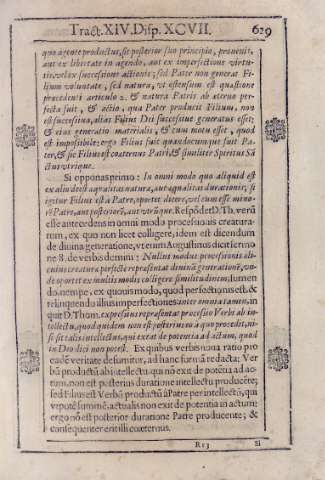 Tract. XIV. Disp. XCVII. 629
quo agente productus, sit posterior suo principio, provenit,
aut ex libertate in agendo, aut ex imperfectione virtu-
tis, vel ex successione actionis; sed Pater non generat Fi-
lium voluntate, sed natura, vt ostensum est quæstione
præcedenti articulo 2. & natura Patris ab æterno per-
fecta fuit, & actio, qua Pater producit Filium, non
est successiva, alias Filius Dei successive generatus esset;
& eius generatio materialis, & cum motu esset, quod
est impossibile: ergo Filius fuit quandocumque fuit Pa-
ter, & sic Filius est coæternus Patri, & similiter Spiritus Sã
ctus vtrique.
Si opponas primo: In omni modo quo aliquid est
ex alio deest æqualitas naturæ, aut æqualitas durationis, si
igitur Filius est à Patre, oportet dicere, vel eum esse mino-
rẽ Patre, aut posteriorẽ, aut vtrũque. Respõdet D. Th. verũ
esse antecedens in omni modo processionis creatura-
rum, ex quo non licet colligere, idem est dicendum
de divina generatione, vt enim Augustinus dicit sermo
ne 8. de verbis domini: Nullius modus processionis ali-
cuius creaturæ perfecte repræsentat divinã generationẽ, vn-
de oportet ex multis modis colligere similitudinem, sumen
do nempe, ex quovis modo, quod perfectionis est, &
relinquendo illius imperfectiones: inter omnia tamen, in
quit D. Thom. expressius repræsentat processio Verbi ab in-
tellectu, quod quidem non est posterius eo à quo procedit, ni-
si sit talis intellectus, qui exeat de potentia ad actum, quod
in Deo dici non potest. Ex quibus verbis nova ratio pro
eadẽ veritate desumitur, ad hanc formã redacta: Ver
bũ productũ ab intellectu, qui nõ exit de potẽtia ad ac-
tum, non est posterius duratione intellectu producẽte;
sed Filius est Verbũ productũ à Patre per intellectũ, qui
vt potè summè actualis non exit de potentia in actum:
ergo nõ est posterior duratione Patre producente; &
consequenter erit illi coæternus.
Rr3 Si